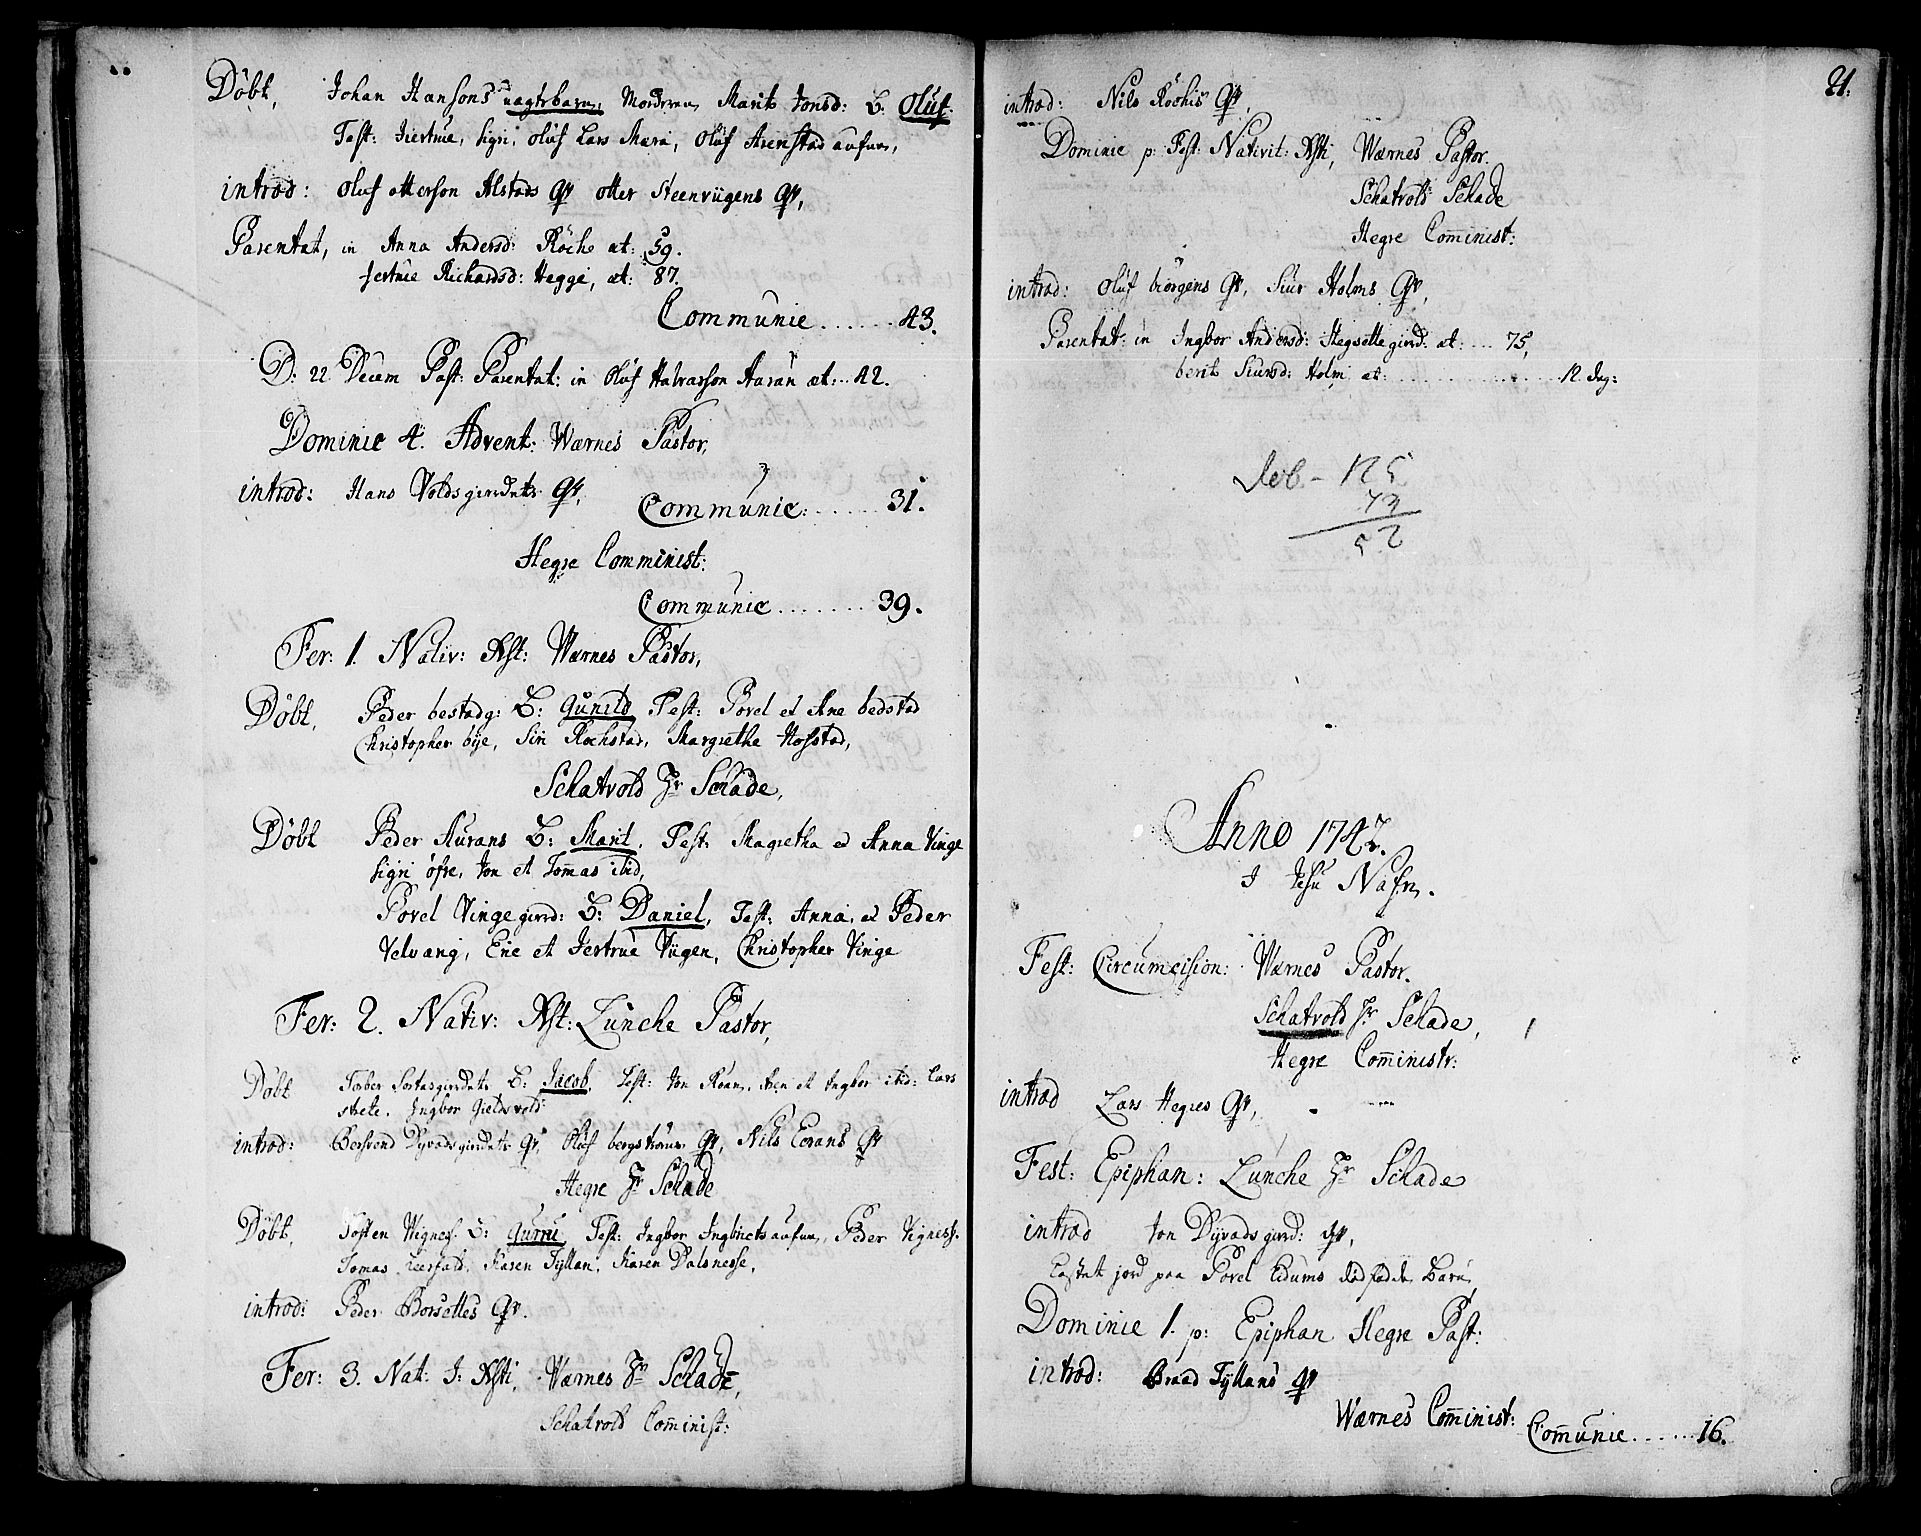 Döbt, Johan Hansons uagtebarn, Moderen Marit Jonsd: B: Oluf.
Test: Jertrue, Sigri, Oluf Lars Mæra, Oluf Arenstad
introd: Oluf Otterson Alstads Qv otter Steenvügens Qv,
Parentat, in Anna Andersd: Röche æt: 59.
Jertrue Richardsd: Hegge, æt: 87.
Communic......43.
D: 22 Decem Past: Parentat: in Oluf Halvarson Auran æt:..42.
Dominic 4. Advent: Wærnes Pastor,
introd: Hans Voldsgierdets Qv, Communic:......31.
Hegre Comminist:
Communic.......39.
Fer: 1. Nativ: Xst: Wærnes Pastor,
Döbt, Peder bestadg: B: Gunild Test: Povel et Ane bedstad
Christopher bÿe, Siri Röchstad, Margrethe Hofstad,
Schatvold Hr Schade,
Döbt Peder Aurans B: Marit. Test: Magretha et Anna Vinge
Sigri öfre, Jon et Tomas ibid,
Povel Vingegierd: B: Daniel, Test: Anna, et Peder
Velvang, Ene et Jertrue Vügen, Christopher Vinge
Fer: 2. Nativ: Xst: Lunche Pastor,
Döbt B: Jacob. Test: Jon Röan, Aren et Ingbor ibid: Lars
Ingbor Gieldsvold
introd: Dyvadsgierdets Qv, Oluf Qv, Nils Qv
Hegre Hr Schade
Döbt, Tosten Wignes: B: Gurru, Test: Ingbor Peder Vigness.
Tomas Karen Tyllan, Karen Dalsnesse,
introd: Peder Borsettes Qv.
Fer: 3. Nat: J: Xsti, Wærnes Hr Schade,
Schatvold Cominist:
21.
introd: Nils Röchis Qv,
Dominic p: Fest: Nativit: Xsti, Wærnes Pastor.
Schatvold Schade
Hegre Cominist:
introd: Oluf biörgens Qv, Siur Holms Qv,
Parentat: in Ingbor Andersd: Hegsettegierd: æt:... 75,
berit Siursd: Holm, æt: ......... 12 dag:
Deb - 125
73
52
Anno 1747.
I Jesu Nafn.
Fest: Circumcision: Wærnes Pastor.
Schatvold Hr Schade,
Hegre Cominist:
introd Lars Hegres Qv,
Fest: Epiphan: Lunche Hr Schade
introd Jon Dÿvadsgierd: Qv,
Castet jord paa Povel Eidums dödfødde Barn,
Dominic 1. p: Epiphan Hegre Past:
introd: Braad Tÿllans Qv
Wærnes Cominist:
Comunic......16.